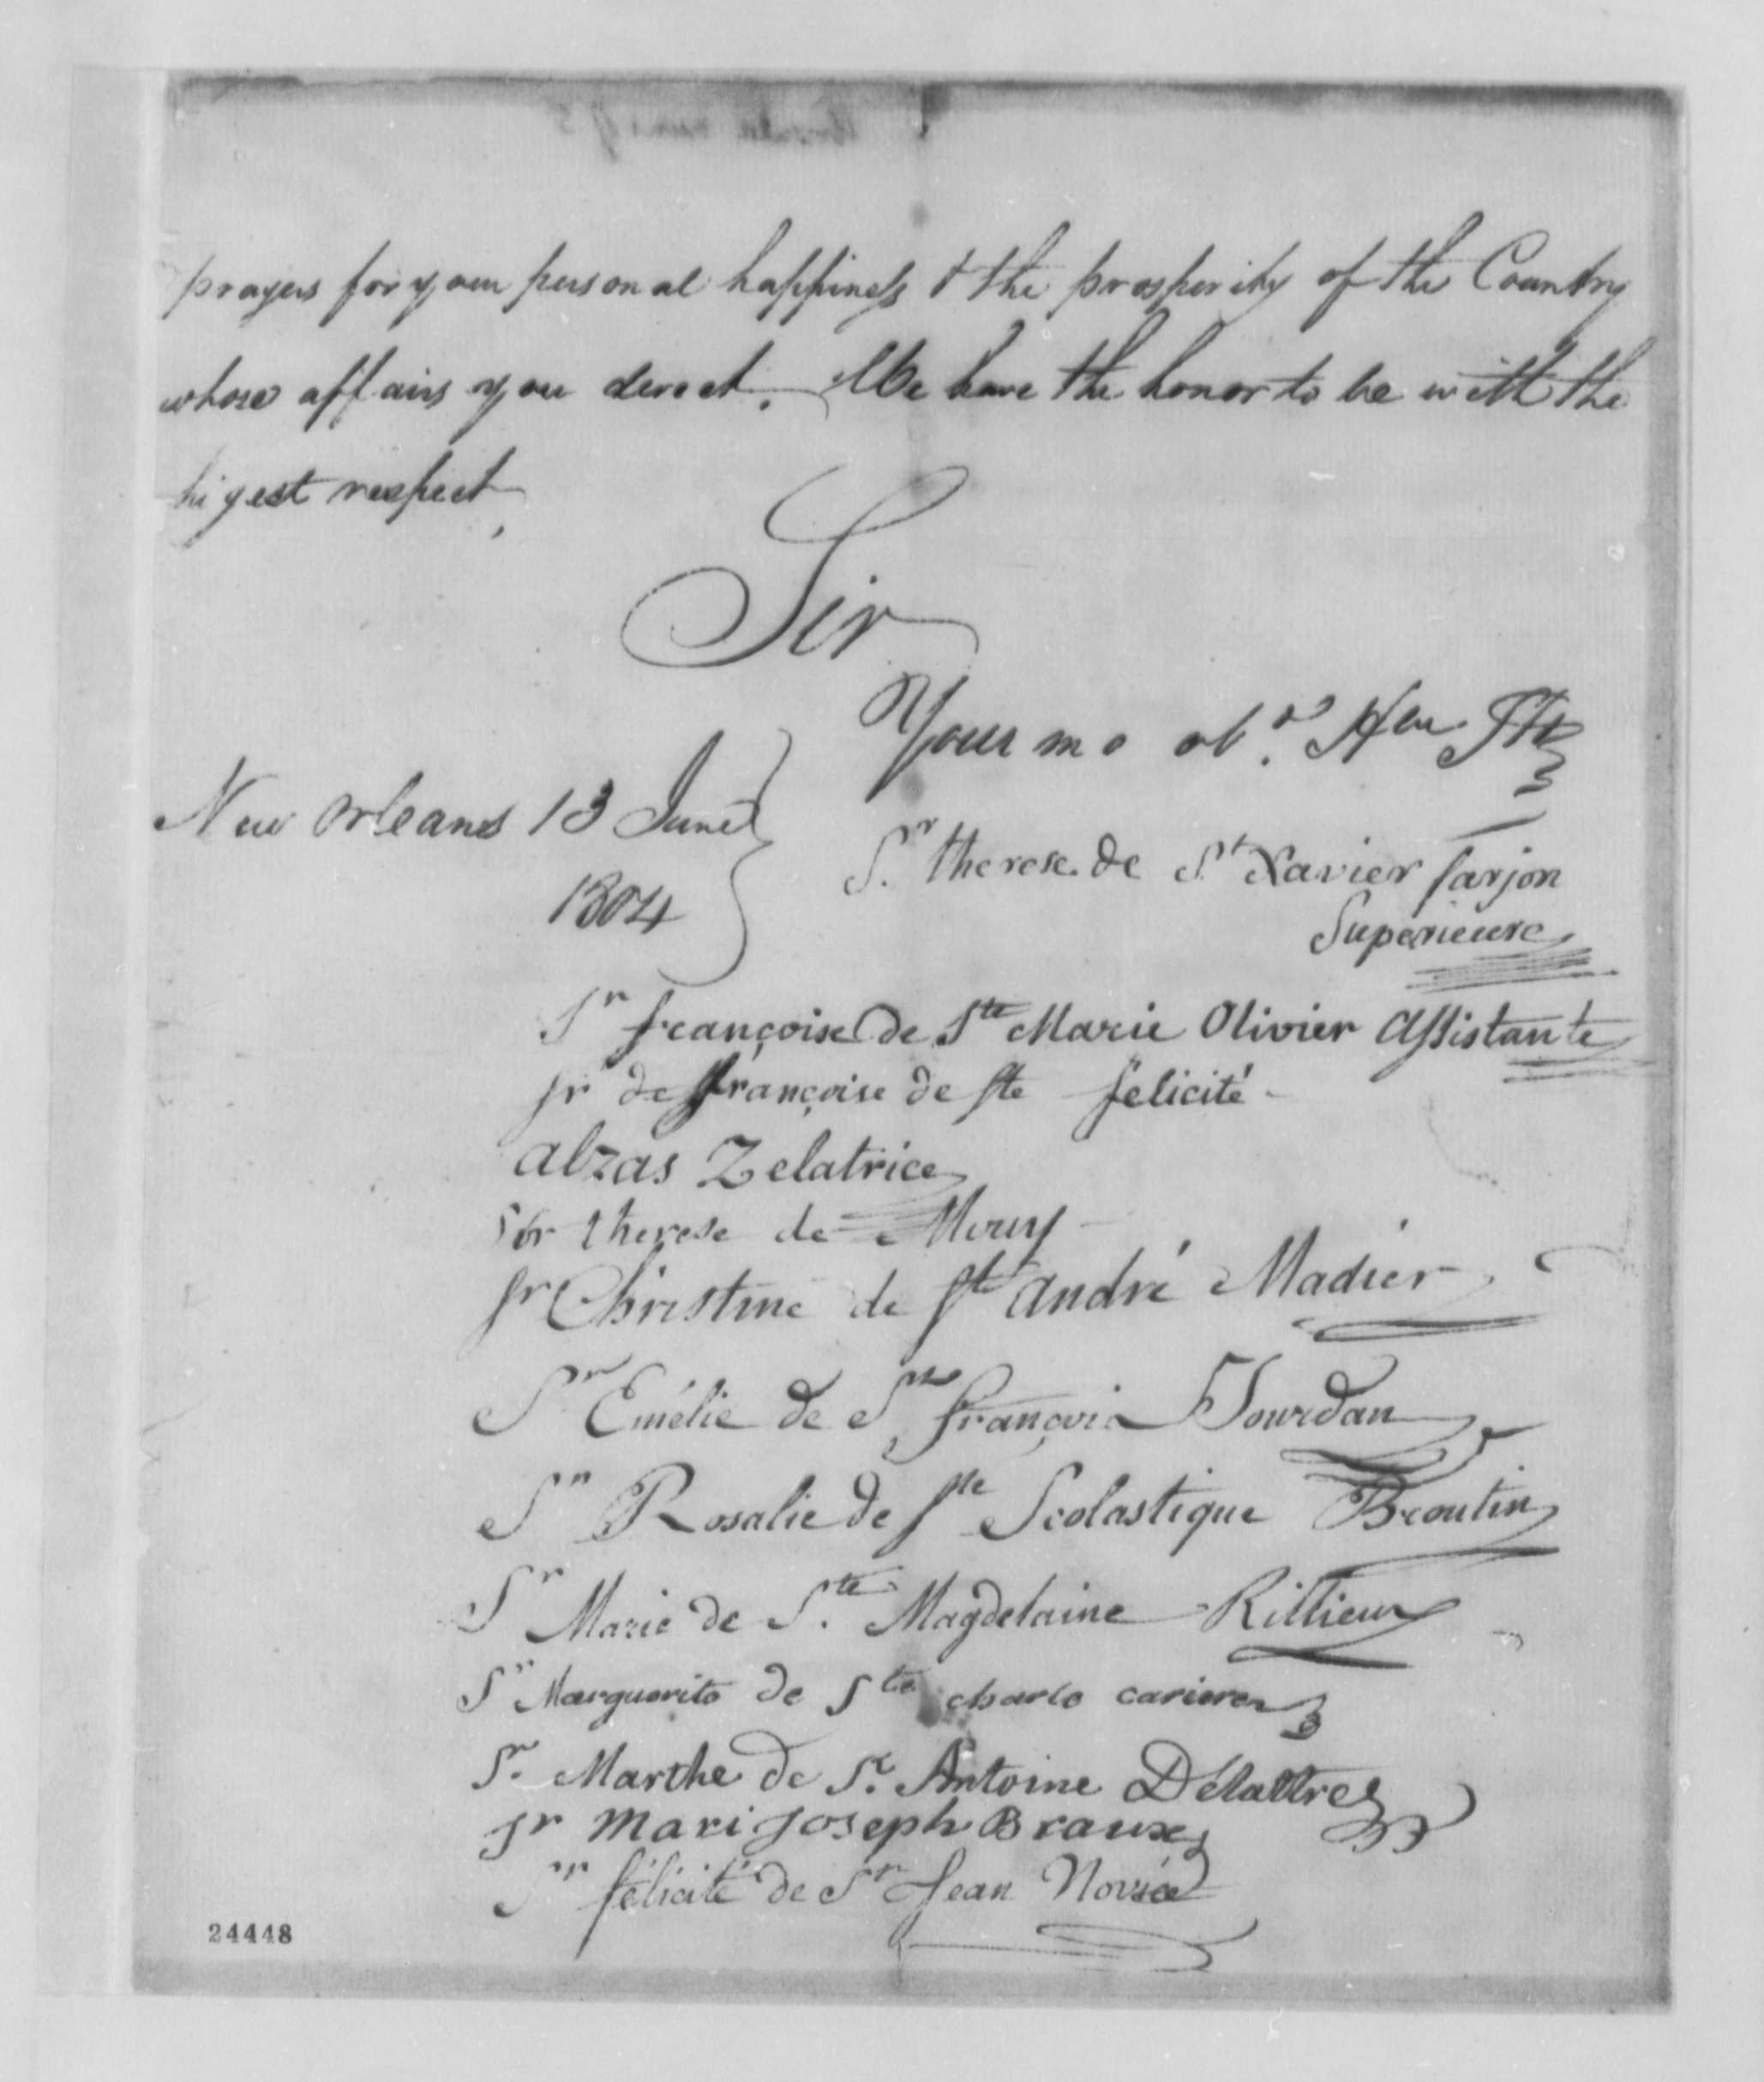 prayers for your personal happiness & the prosperity of the Country
whose affairs you derect. We have the honor to be with the
higest respect,
Sir
Your mo obt Hm St
New Orleans 13 June
1804
Sr therese de St Xavier farjon
Superieure
Sr françoise de Ste Marie Olivier Assistante
Sr de françoise de Ste felicité
alzas Zelatrice
Sor therese de Mouy
Sr Christine de St andré Madier
Sr Emélie de St françois Jourdan
Sr Rosalie de Ste Scolastique Broutin
Sr Marie de Ste Magdelaine Rillieux
Sr Marguerite de St charle cariere
Sr Marthe de St Antoine Délattre
Sr Mari Joseph Braux
Sr félicité de St Jean Novice
24448